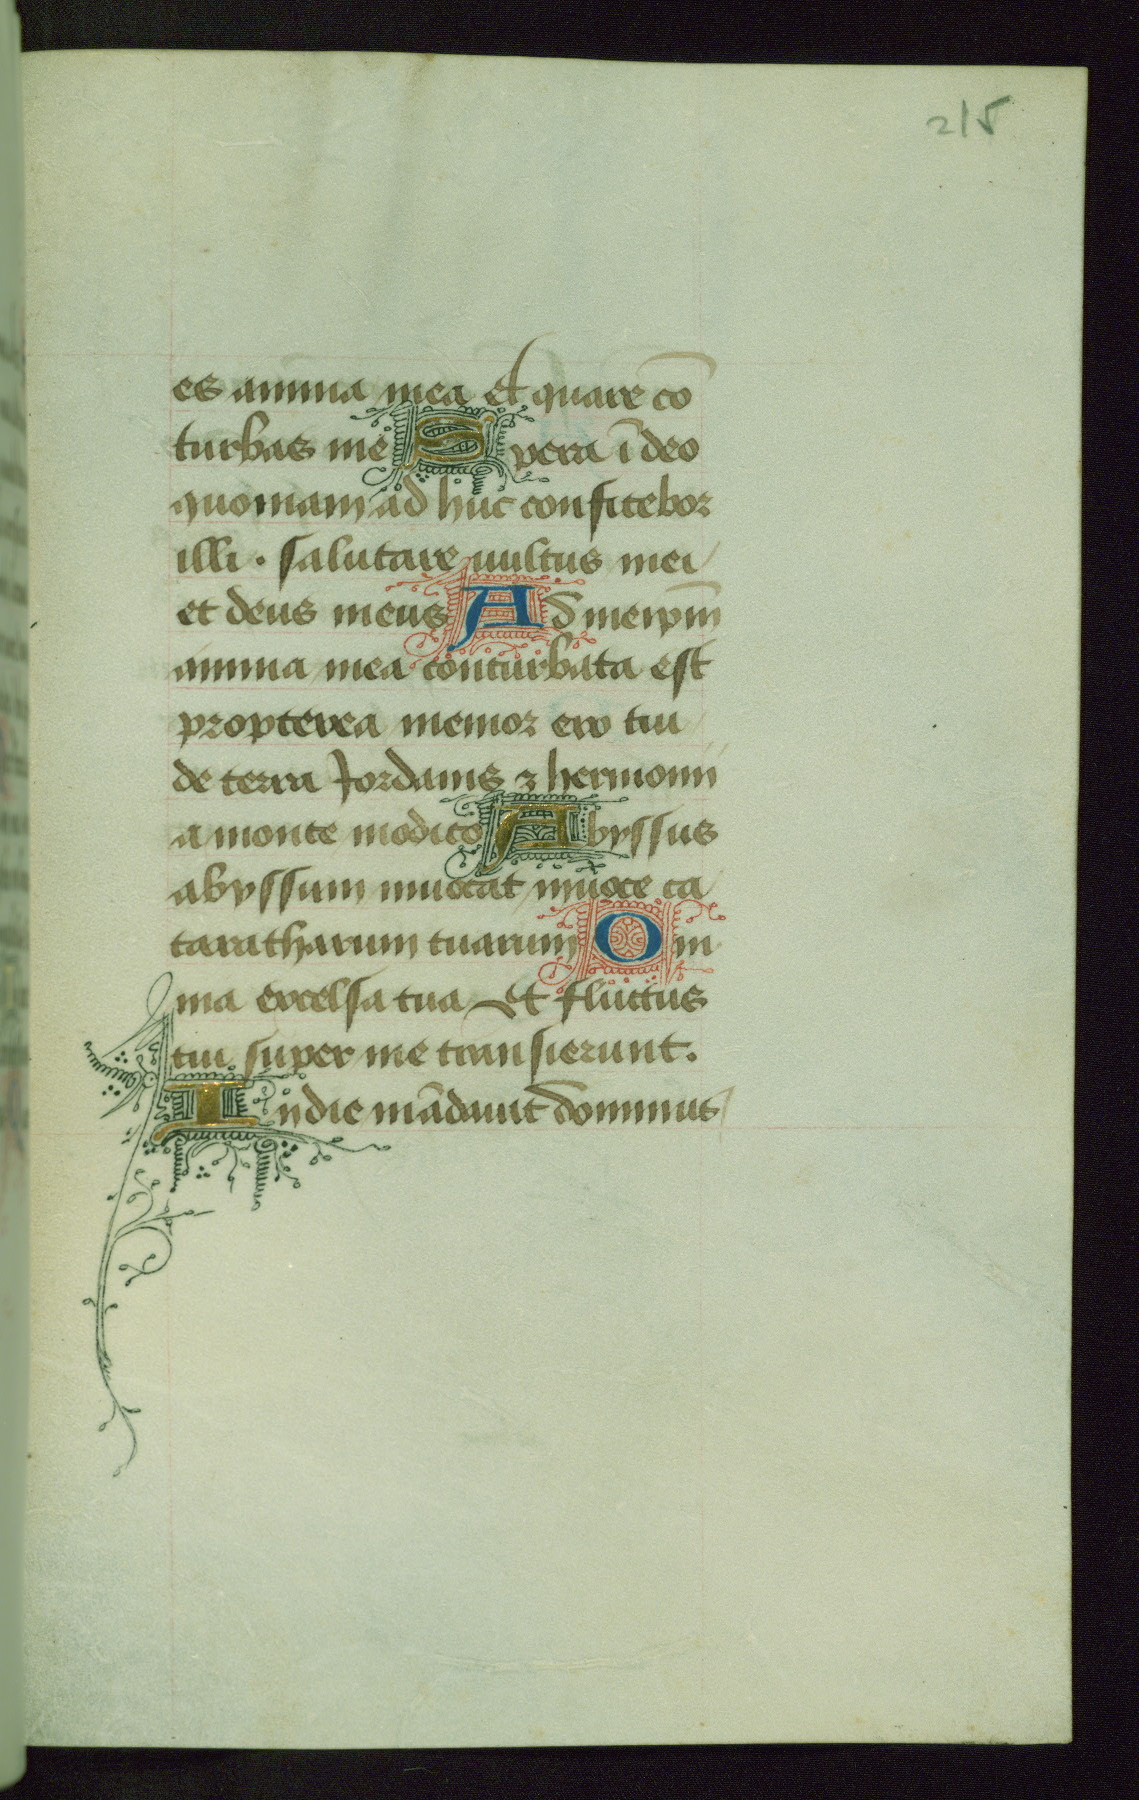 215
es anima mea et quare cō
turbas me Spera ī deo
quoniam ad huc confitebor
illi. salutare uultus mei
et deus meus Ad meipm̄
anima mea conturbata est
propterea memor ero tui
de terra Jordanis ⁊ hermonii
a monte modico Abyssus
abyssum inuocat inuoce ca
taratharum tuarum Om
nia excelsa tua Et fluctus
tui super me transierunt.
In die mādauit dominus